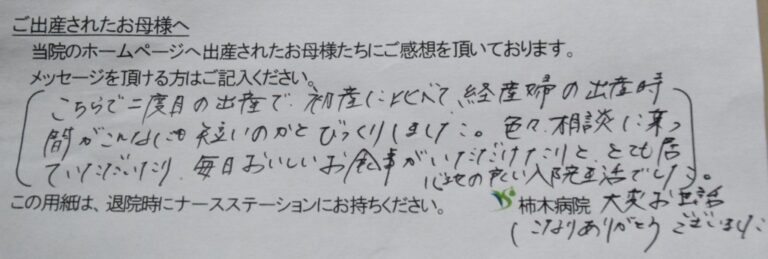 ご出産されたお母様へ
当院のホームページへ出産されたお母様たちにご感想を頂いております。
メッセージを頂ける方はご記入ください。
こちらで二度目の出産で、初産に比べて、経産婦の出産時
間がこんなにも短いのかとびっくりしました。色々相談に乗っ
ていただいたり、毎日おいしいお食事がいただけたりと、とても居
心地の良い入院生活でした。
この用紙は、退院時にナースステーションにお持ちください。
柿木病院
大変お世話
になりありがとうございました